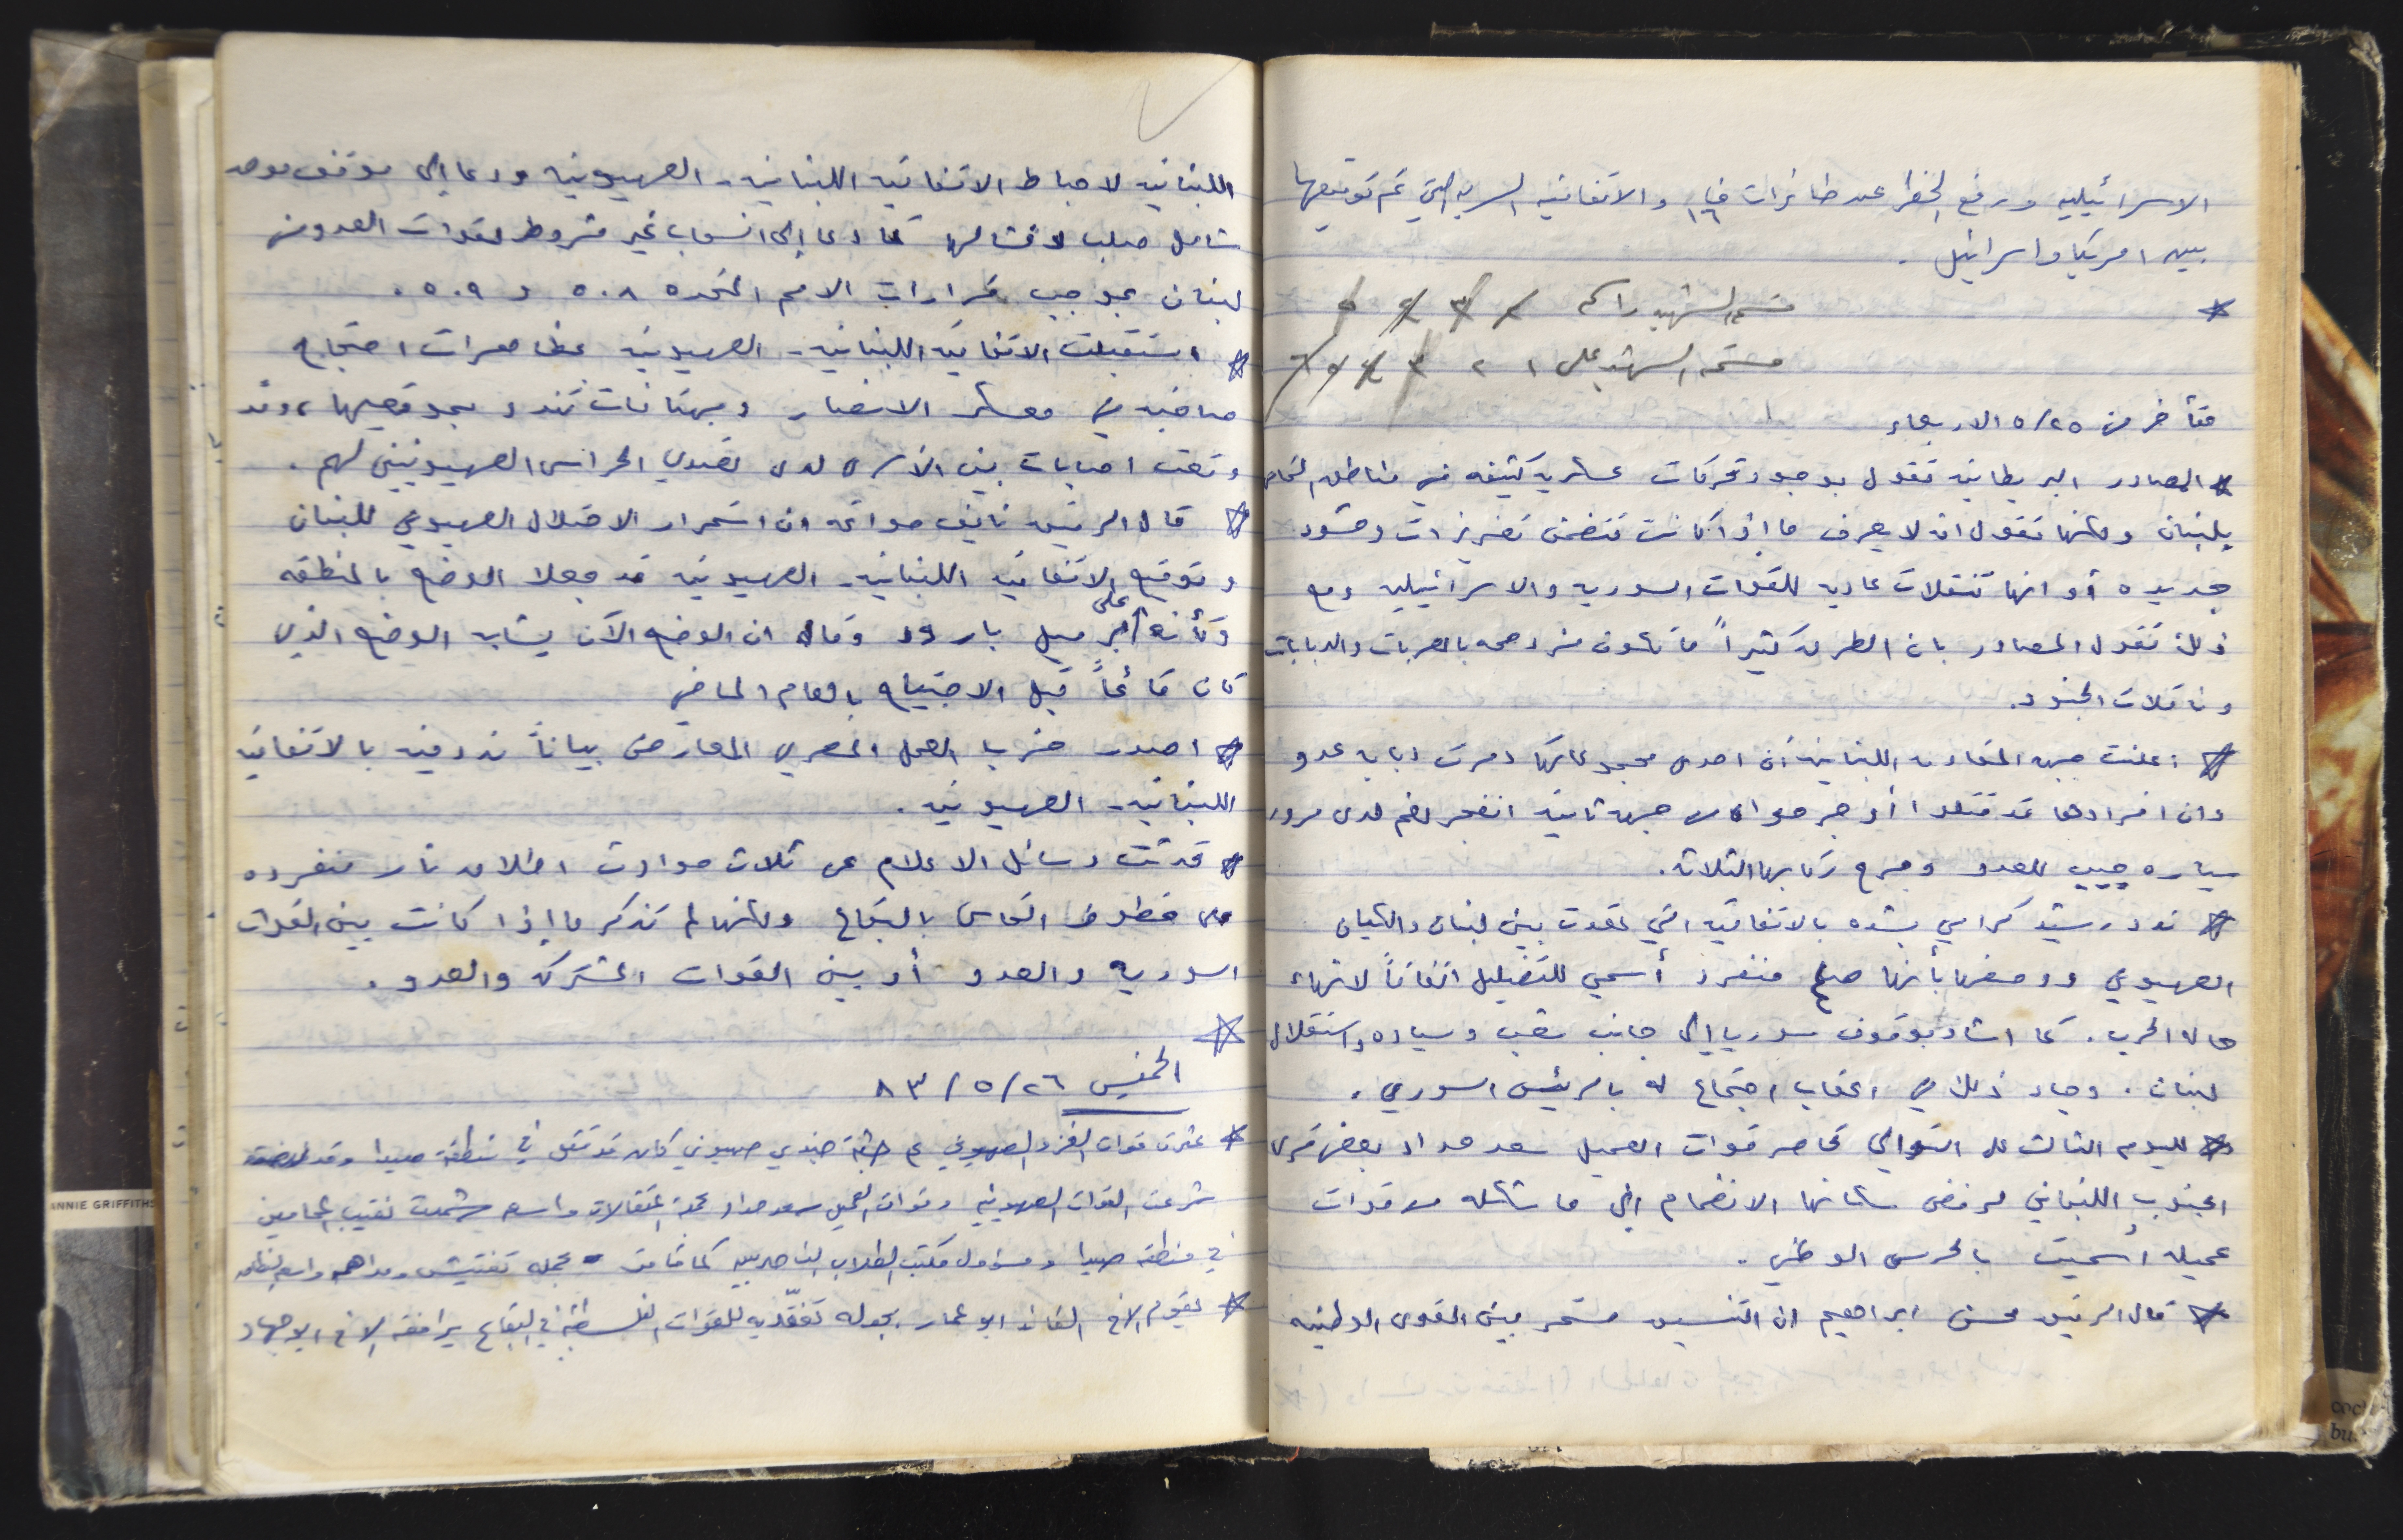 الاسرائيليه ورفع الحظر عن طائرات ف١٦ والاتفاقيه السريه التي تم توقيعها
بين امريكا واسرائيل .
قسم الشهيد راسم
قسم الشهيد علي ١ ٢ ٣
متأخر من ٥/٢٥ الاربعاء
المصادر البريطانيه تقول بوجود تحركات عسكريه كثيفه في مناطق التماس
بلبنان ولكنها تقول انه لا يعرف ما إذا كانت تتضمن تعزيزات وحشود
جديده أو انها تنقلات عاديه للقوات السوريه والاسرائيليه ومع
ذلك تقول المصادر بان الطرق كثيراً ما تكون مزدحمه بالعربات والدبابات
وناقلات الجنود.
اعلنت جبهه المقاومه اللبنانيه أن احدى مجموعاتها دمرت دبابه عدو
وان افرادها قد قتلوا أو جرحوا ومن جهة ثانيه انفجر لغم لدى مرور
سياره جيب للعدو وجرح ركابها الثلاثه.
ندد رشيد كرامي بشده بالاتفاقيه التي عقدت بين لبنان والكيان
الصهيوني ووصفها بأنها صلح منفرد أسمي للتضليل اتفاقاً لانهاء
حاله الحرب . كما اشاد بوقوف سوريا إلى جانب شعب وسياده واستقلال
لبنان . وجاء ذلك في اعقاب اجتماع له بالرئيس السوري .
لليوم الثالث على التوالي تحاصر قوات العميل سعد حداد بعض قرى
الجنوب اللبناني لرفض سكانها الانضمام إلى ما شكله من قوات
عميله أسميت بالحرس الوطني .
قال الرفيق محسن ابراهيم ان التنسيق مستمر بين القوى الوطنيه
اللبنانيه لاحباط الاتفاقيه اللبنانيه - الصهيونيه ودعا إلى موقف موحد
شامل صلب لافشالها كما دعا إلى انسحاب غير مشروط لقوات العدو من
لبنان بموجب قرارات الامم المتحده ٥٠٨ و ٥٠٩ .
استقبلت الاتفاقيه اللبنانيه - الصهيونيه بمظاهرات احتجاج
صاخبه في معسكر الانصار وبهتافات تندد بموقعيها ، وقد
وقعت اصابات بين الأسرى لدى تصدي الحراس الصهيونيين لهم .
قال الرفيق نايف حواتمه ان استمرار الاحتلال الصهيوني للبنان
وتوقيع الاتفاقيه اللبنانيه - الصهيونيه قد جعلا الوضع بالمنطقه
وكأنه على برميل بارود وقال ان الوضع الآن يشابه الوضع الذي
كان قائماً قبل الاجتياح بالعام الماضي
اصدر حزب العمل المصري المعارض بياناً ندد فيه بالاتفاقيه
اللبنانيه - الصهيونيه .
تحدثت وسائل الاعلام عن ثلاث حوادث اطلاق نار منفرده
على خطوط التماس بالبقاع ولكنها لم تذكر ما إذا كانت بين القوات
السوريه والعدو أو بين القوات المشتركه والعدو .
الخميس ٨٣/٥/٢٦
عثرت قوات الغزو الصهيوني على جثة جندي صهيوني كان قد قتل في منطقة صيدا وقد
شرعت القوات الصهيونيه وقوات العميل سعد حداد بحملة اعتقالات واسعه شملت نقيب المحامين
في منطقة صيدا ومسؤول مكتب الطلاب الناصريين كما قامت بحمله تفتيش ومداهمه واسعه
يقوم الاخ القائد ابو عمار بجوله تفقّديه للقوات الفلسطينيه في البقاع يرافقه الاخ ابو جهاد